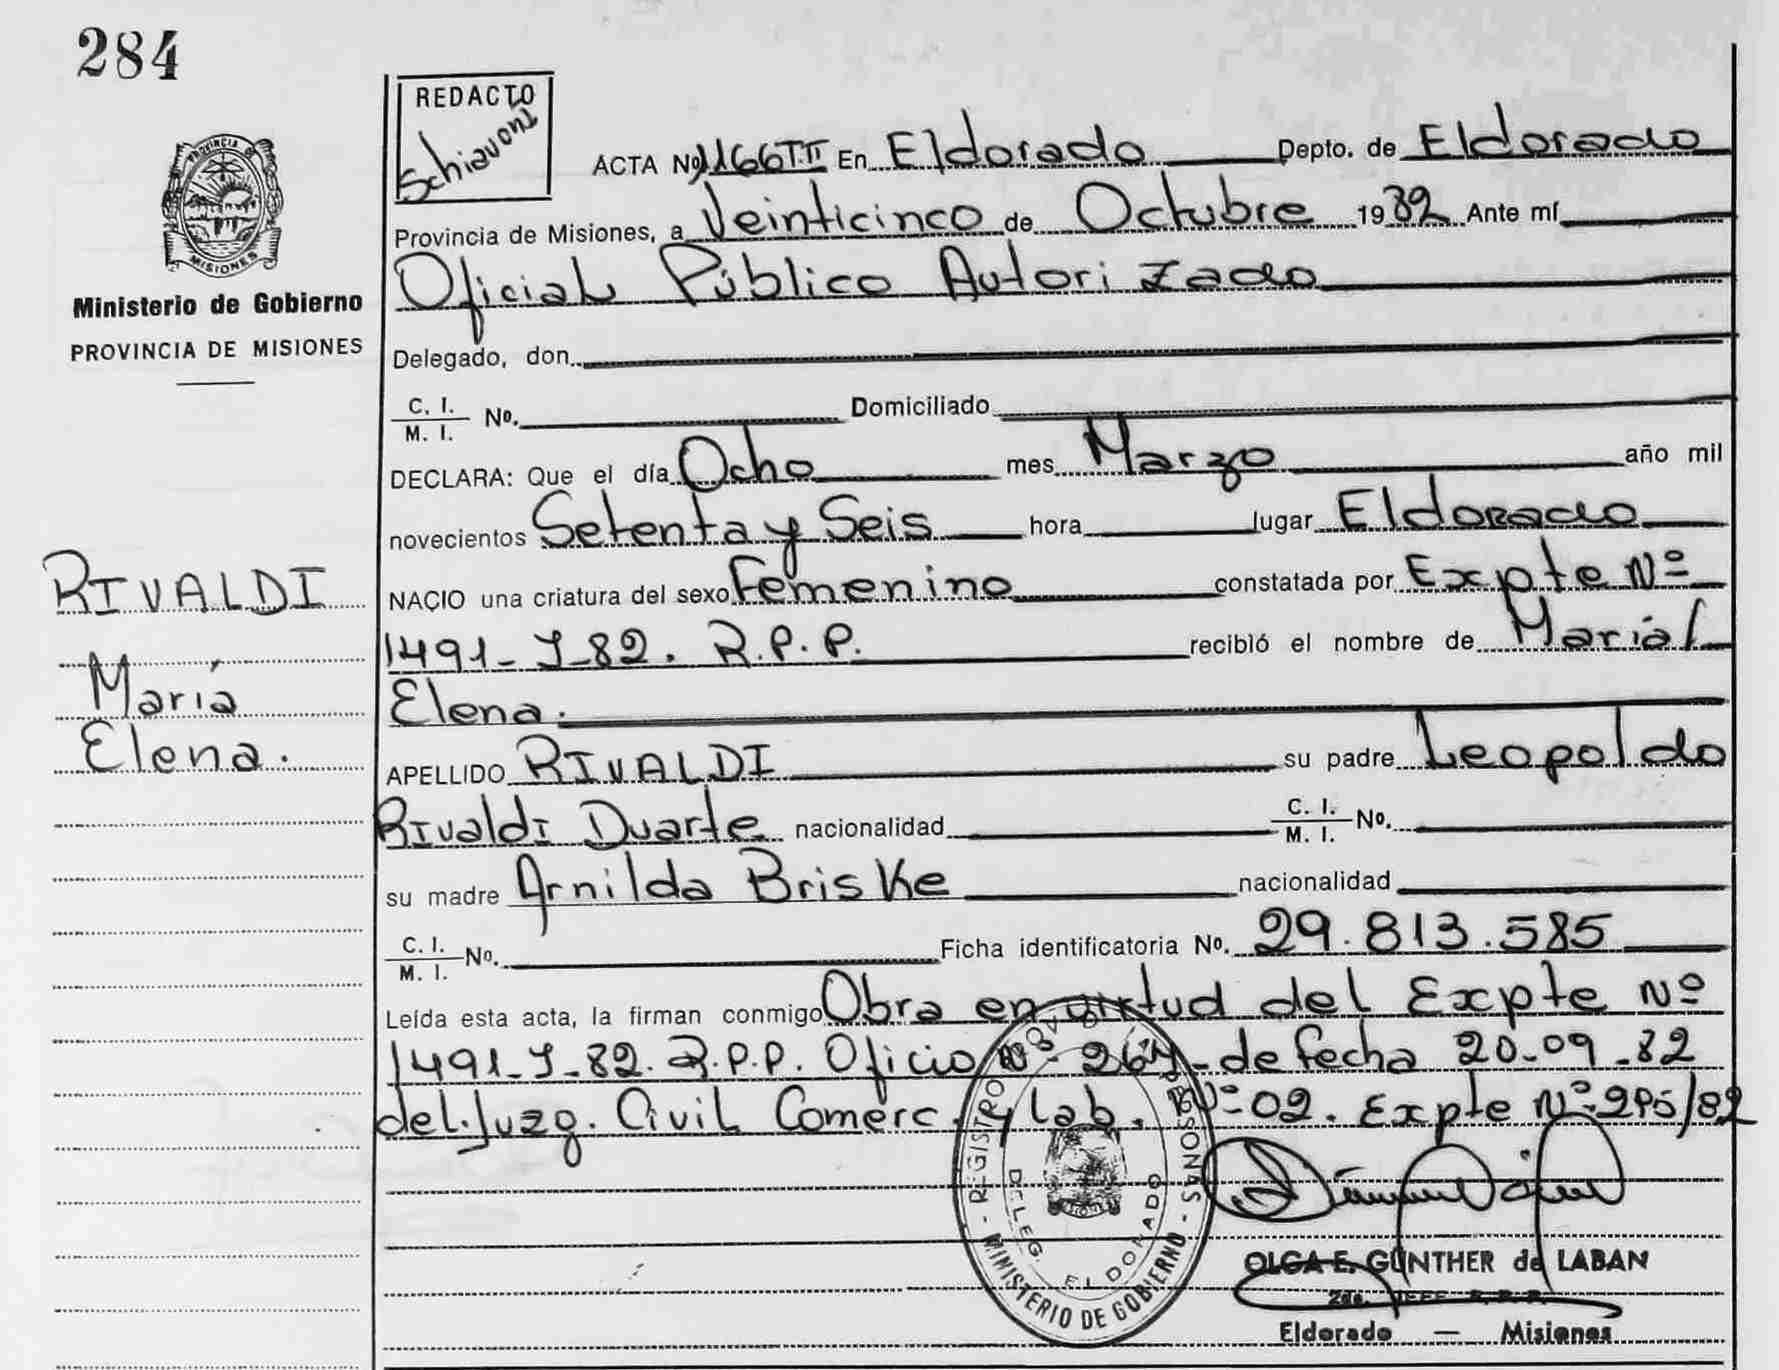 284
REDACTO
Schiavoni
PROVINCIA DE
MISIONES
Ministerio de Gobierno
PROVINCIA DE MISIONES
RIVALDI
María
Elena.
ACTA Nº 1166 T.II En Eldorado Depto. de Eldorado
Provincia de Misiones, a Veinticinco de Octubre 1982 Ante mí
Oficial Público Autorizado
Delegado, don
C. I.
M. I. Nº. Domiciliado
DECLARA: Que el día Ocho mes Marzo año mil
novecientos Setenta y Seis hora lugar Eldorado
NACIO una criatura del sexo Femenino constatada por Expte Nº
1491-J-82. R.P.P. recibió el nombre de María/
Elena.
APELLIDO RIVALDI su padre Leopoldo
Rivaldi Duarte nacionalidad C. I. M. I. Nº.
su madre Arnilda Briske nacionalidad
C. I. M. I. Nº. Ficha identificatoria Nº. 29.813.585
Leída esta acta, la firman conmigo Obra en virtud del Expte Nº
1491-J-82. R.P.P. Oficio Nº 264- de fecha 20-09-82
del Juzg. Civil Comerc. y Lab. Nº 02. Expte Nº 295/82
REGISTRO PERSONAS
MINISTERIO DE GOBIERNO
DELEG. ELDORADO
OLGA E. GUNTHER de LABAN
2da. JEFE R. P. P.
Eldorado — Misiones